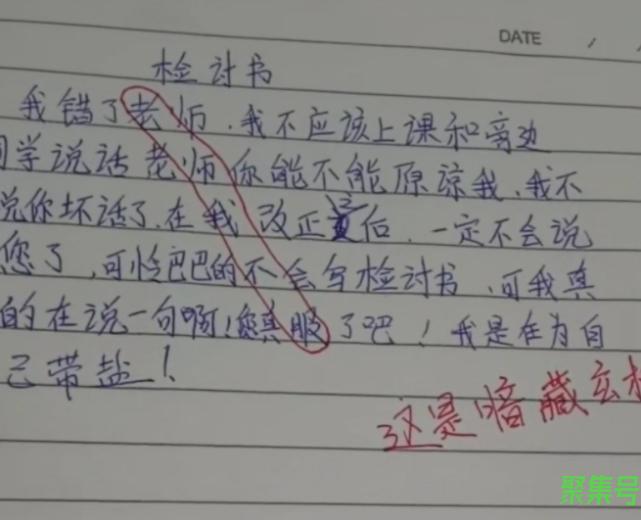 DATE / /
检讨书
我错了老师.我不应该上课和旁边
同学说话老师你能不能原谅我.我不
说你坏话了.在我改正之后.一定不会说
您了,可怜巴巴的不会写检讨书.可我真
的在说一句啊!您真服了吧!我是在为自
己带盐!
这是暗藏玄机
聚集号